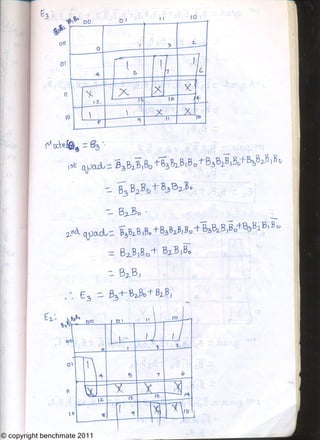 E₃
00 01 11 10
00 0 1 3 2
01 4 1 5 1 7 1 6
11 X 12 X 13 X 15 X 14
10 1 8 1 9 X 11 X 10
= B₃
1st quad = B̅₃B₂B̅₁B₀ + B̅₃B₂B₁B₀ + B₃B₂B̅₁B₀ + B₃B₂B₁B₀
= B̅₃B₂B₀ + B₃B₂B₀
= B₂B₀
2nd quad = B̅₃B₂B₁B₀ + B₃B₂B₁B₀ + B̅₃B₂B₁B̅₀ + B₃B₂B₁B̅₀
= B₂B₁B₀ + B₂B₁B̅₀
= B₂B₁
∴ E₃ = B₃ + B₂B₀ + B₂B₁
E₂:
00 01 11 10
00 0 1 1 1 3 1 2
01 1 4 5 7 6
11 X 12 X 13 X 15 X 14
10 8 1 9 X 11 X 10
© copyright benchmate 2011